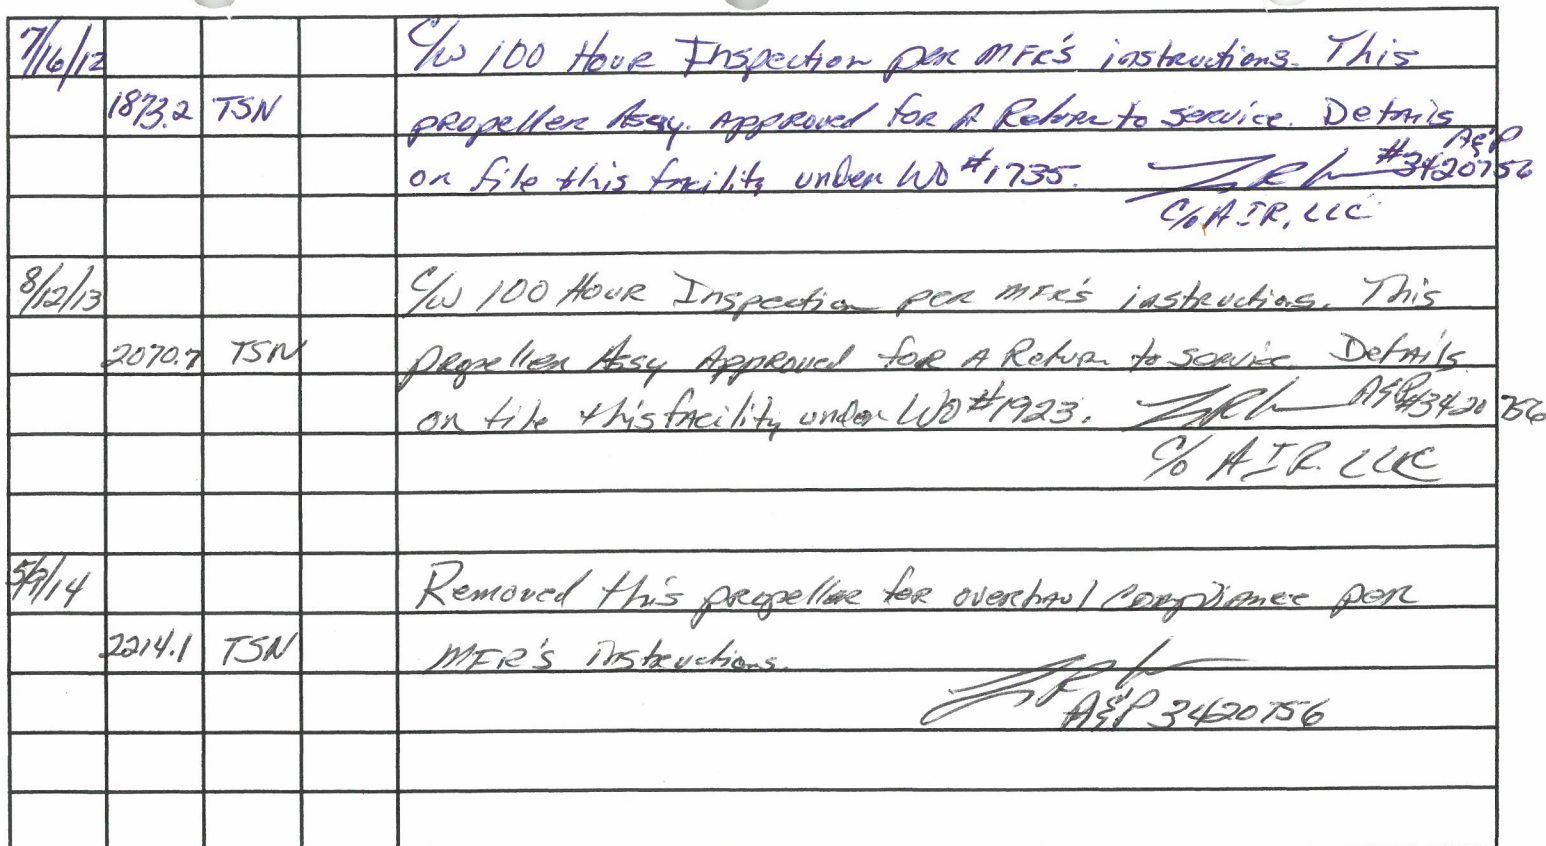 7/16/12 C/W 100 Hour Inspection per MFR's instructions. This
1873.2 TSN propeller Assy. Approved for A Return to service. Details
on file this facility under WO #1735. A&P #3420756
C/O AIR, LLC
8/12/13 C/W 100 Hour Inspection per MFR's instructions. This
2070.7 TSN propeller Assy Approved for A Return to service. Details
on file this facility under WO #1923. A&P #3420756
C/O AIR. LLC
5/9/14 Removed this propeller for overhaul compliance per
2214.1 TSN MFR'S instructions.
A&P 3420756